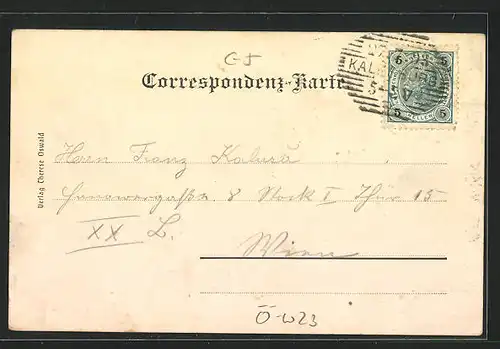 C-5
Correspondenz-Karte
5 5
HELLER
5 5
Herrn Franz Kaluža
Hannovergaße 8 Stock I Thür 15
XX L.
Wien
Verlag Therese Oswald
Ö-W23